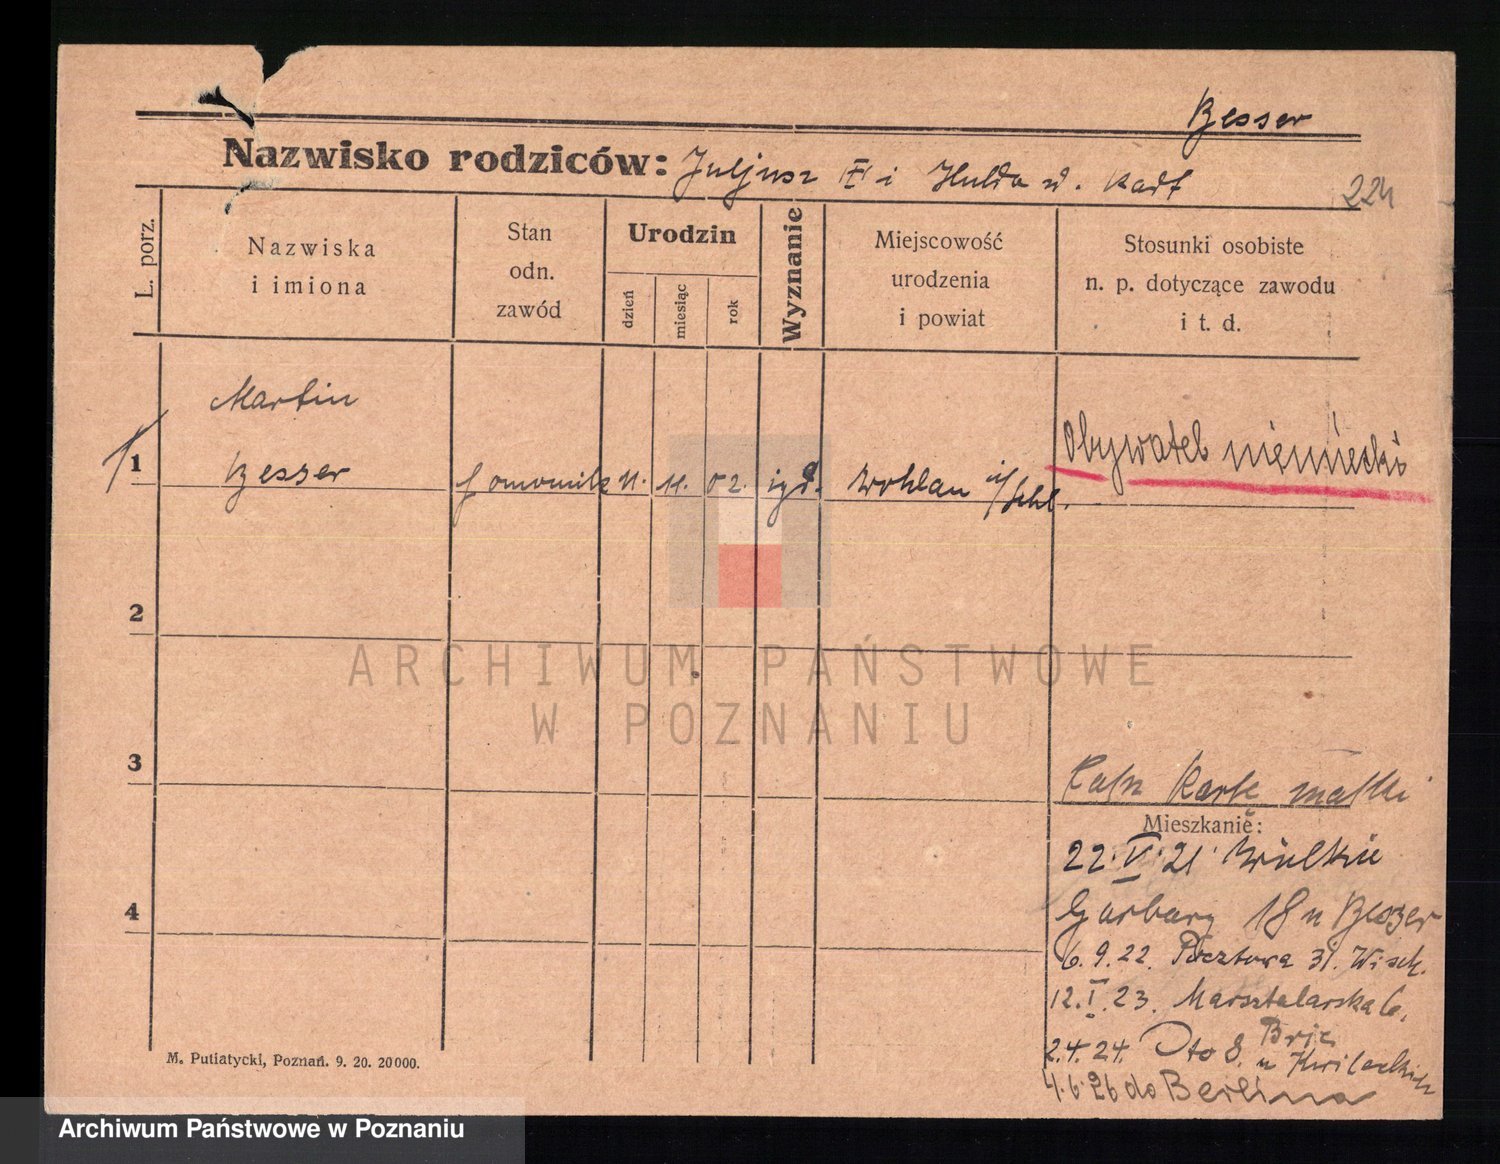 Besser
Nazwisko rodziców: Juljusz i Hulda
224
L. porz.
Nazwiska
i imiona
Stan
odn.
zawód
Urodzin
dzień
miesiąc
rok
Wyznanie
Miejscowość
urodzenia
i powiat
Stosunki osobiste
n. p. dotyczące zawodu
i t. d.
1
Martin
Besser
11. 11. 02.
Wohlau i/Schl.
Obywatel niemiecki
2
3
4
Kartę matki
Mieszkanie:
22. V. 21 Wielkie
Garbary 18 u Besser
6. 9. 22. Pocztowa 31. Wisch.
12. I. 23. Marsztalarska 6.
2. 4. 24. 8. u
4. 6. 26 do Berlina
M. Putiatycki, Poznań. 9. 20. 20000.
ARCHIWUM PAŃSTWOWE
W POZNANIU
Archiwum Państwowe w Poznaniu